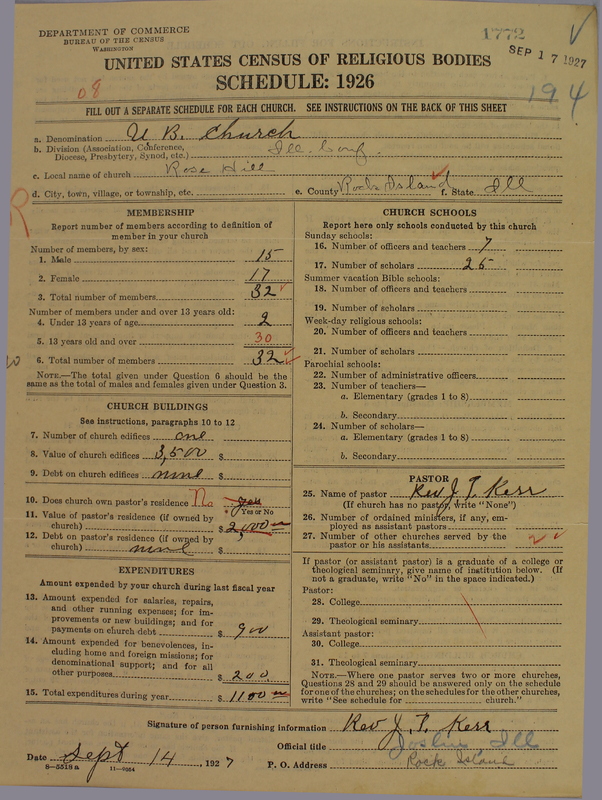 DEPARTMENT OF COMMERCE
BUREAU OF THE CENSUS
WASHINGTON
1772
SEP 17 1927
UNITED STATES CENSUS OF RELIGIOUS BODIES
SCHEDULE: 1926
08
194
FILL OUT A SEPARATE SCHEDULE FOR EACH CHURCH. SEE INSTRUCTIONS ON THE BACK OF THIS SHEET
a. Denomination U. B. Church
b. Division (Association, Conference, Diocese, Presbytery, Synod, etc.) Ill. Conf.
c. Local name of church Rose Hill
d. City, town, village, or township, etc. e. County Rock Island f. State Ill
R
MEMBERSHIP
Report number of members according to definition of
member in your church
Number of members, by sex:
1. Male 15
2. Female 17
3. Total number of members 32
Number of members under and over 13 years old:
4. Under 13 years of age 2
5. 13 years old and over 30
6. Total number of members 32
NOTE.—The total given under Question 6 should be
same as the total of males and females given under Question 3.
CHURCH BUILDINGS
See instructions, paragraphs 10 to 12
7. Number of church edifices one
8. Value of church edifices 3,500 $
9. Debt on church edifices none $
10. Does church own pastor's residence No yes
Yes or No
11. Value of pastor's residence (if owned by
church) $ 2,000
12. Debt on pastor's residence (if owned by
church) none $
EXPENDITURES
Amount expended by your church during last fiscal year
13. Amount expended for salaries, repairs,
and other running expenses; for im-
provements or new buildings; and for
payments on church debt $ 900
14. Amount expended for benevolences, in-
cluding home and foreign missions; for
denominational support; and for all
other purposes $ 200
15. Total expenditures during year $ 1100
CHURCH SCHOOLS
Report here only schools conducted by this church
Sunday schools:
16. Number of officers and teachers 7
17. Number of scholars 25
Summer vacation Bible schools:
18. Number of officers and teachers
19. Number of scholars
Week-day religious schools:
20. Number of officers and teachers
21. Number of scholars
Parochial schools:
22. Number of administrative officers
23. Number of teachers—
a. Elementary (grades 1 to 8)
b. Secondary
24. Number of scholars—
a. Elementary (grades 1 to 8)
b. Secondary
PASTOR
25. Name of pastor Rev J. T. Kerr
(If church has no pastor, write "None")
26. Number of ordained ministers, if any, em-
ployed as assistant pastors
27. Number of other churches served by the
pastor or his assistants 2
If pastor (or assistant pastor) is a graduate of a college or
theological seminary, give name of institution below. (If
not a graduate, write "No" in the space indicated.)
Pastor:
28. College
29. Theological seminary
Assistant pastor:
30. College
31. Theological seminary
NOTE.—Where one pastor serves two or more churches,
Questions 28 and 29 should be answered only on the schedule
for one of the churches; on the schedules for the other churches,
write "See schedule for church."
Signature of person furnishing information Rev J. T. Kerr
Official title Joslin Ill
Date Sept 14, 1927 P. O. Address Rock Island
8—5518 a 11—2664